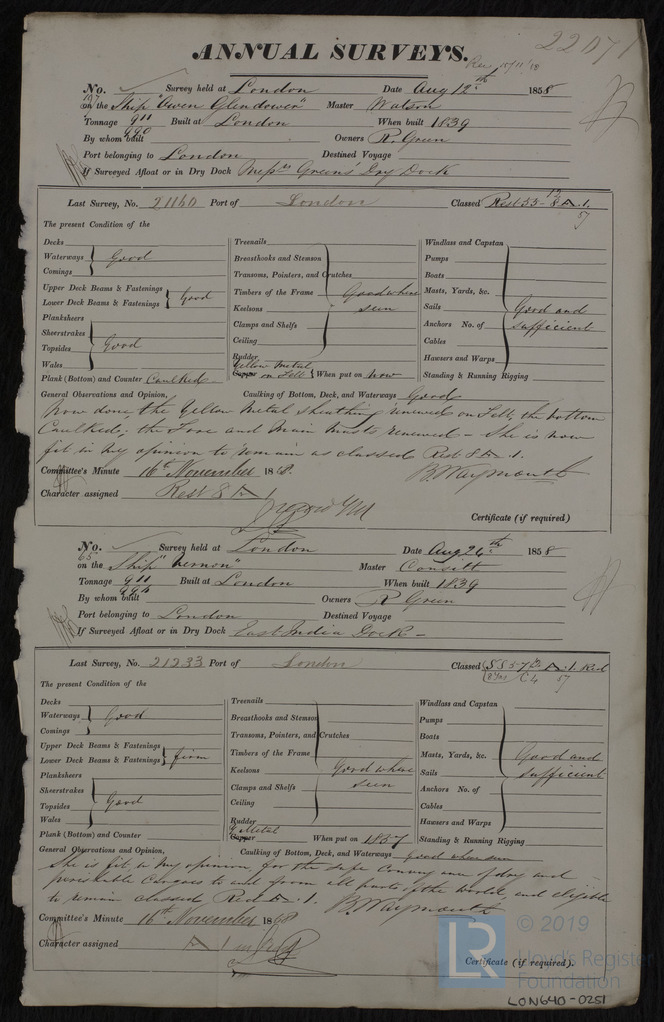 22071
ANNUAL SURVEYS.
No. Survey held at London Date Aug 12th 1858
on the Ship "Owen Glendower" Master Watson
Tonnage 911 Built at London When built 1839
By whom built Owners R. Green
Port belonging to London Destined Voyage
If Surveyed Afloat or in Dry Dock Green's Dry Dock
Last Survey, No. 21160 Port of London Classed
The present Condition of the
Decks
Waterways Good
Comings
Upper Deck Beams & Fastenings
Lower Deck Beams & Fastenings Good
Planksheers
Sheerstrakes
Topsides Good
Wales
Plank (Bottom) and Counter Caulked
Treenails
Breasthooks and Stemson
Transoms, Pointers, and Crutches
Timbers of the Frame Good where
Keelsons seen
Clamps and Shelfs
Ceiling
Rudder
Yellow Metal
Copper on Felt When put on now
Windlass and Capstan
Pumps
Boats
Masts, Yards, &c.
Sails Good and
Anchors No. of sufficient
Cables
Hawsers and Warps
Standing & Running Rigging
General Observations and Opinion, Caulking of Bottom, Deck, and Waterways Good
Now done the Yellow Metal sheathing renewed on Felt, the bottom
Caulked, the Fore and Main Masts renewed - She is now
fit in my opinion to remain as classed Rest 8 A. 1.
Committee's Minute 16th November 1858. B. Waymouth
Character assigned Rest 8 A 1
Certificate (if required)
No. Survey held at London Date Aug 24th 1858
on the Ship "Vernon" Master Consitt
Tonnage 911 Built at London When built 1839
By whom built Owners R Green
Port belonging to London Destined Voyage
If Surveyed Afloat or in Dry Dock East India Dock
Last Survey, No. 21233 Port of London Classed
The present Condition of the
Decks
Waterways Good
Comings
Upper Deck Beams & Fastenings
Lower Deck Beams & Fastenings firm
Planksheers
Sheerstrakes
Topsides Good
Wales
Plank (Bottom) and Counter
Treenails
Breasthooks and Stemson
Transoms, Pointers, and Crutches
Timbers of the Frame
Keelsons Good where
Clamps and Shelfs seen
Ceiling
Rudder
Y Metal
Copper When put on 1857
Windlass and Capstan
Pumps
Boats
Masts, Yards, &c. Good and
Sails sufficient
Anchors No. of
Cables
Hawsers and Warps
Standing & Running Rigging
General Observations and Opinion, Caulking of Bottom, Deck, and Waterways Good when seen
She is fit in my opinion for the safe Conveyance of dry and
perishable Cargoes to and from all parts of the world, and eligible
to remain classed Red A. 1. B. Waymouth
Committee's Minute 16th November 1858
Character assigned A 1 in Red
Certificate (if required).
© 2019
LR Lloyd's Register
Foundation
LON640-0251